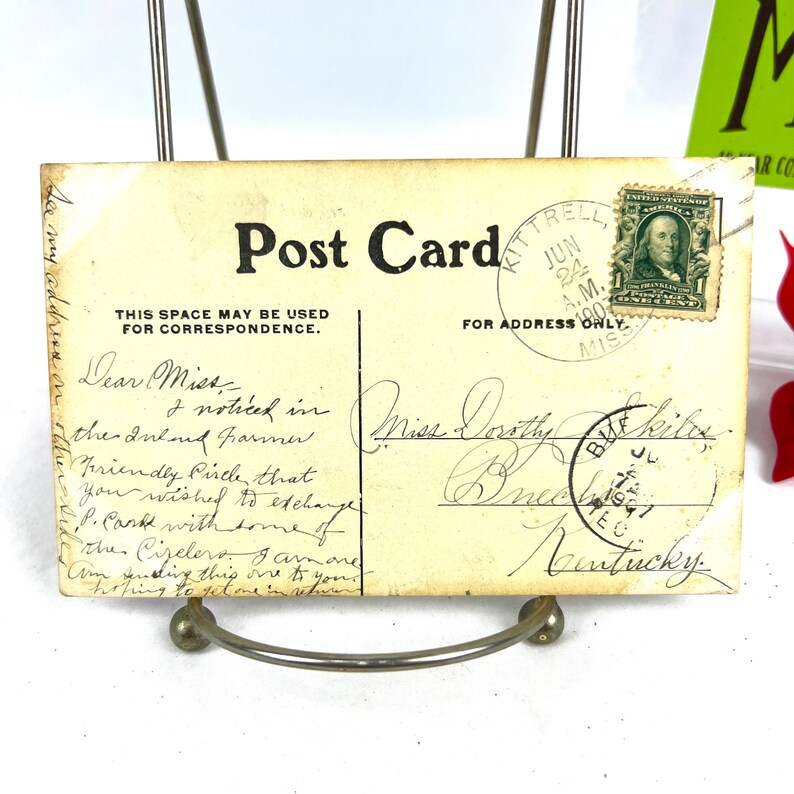 Post Card
THIS SPACE MAY BE USED
FOR CORRESPONDENCE.
FOR ADDRESS ONLY.
KITTRELL,
JUN
24
A.M.
190
MISS.
SERIES 1902
UNITED STATES OF
AMERICA
1
1
1706 FRANKLIN 1790
POSTAGE
ONE CENT
Dear Miss,
I noticed in
the Inland Farmer
Friendly Circle that
you wished to exchange
P. Cards with some of
the Circlers. I am one
am sending this one to you
hoping to get one in return
my address on other side
Miss Dorothy Skiles
Kentucky.
BUE
7
REC
M
YEAR CO